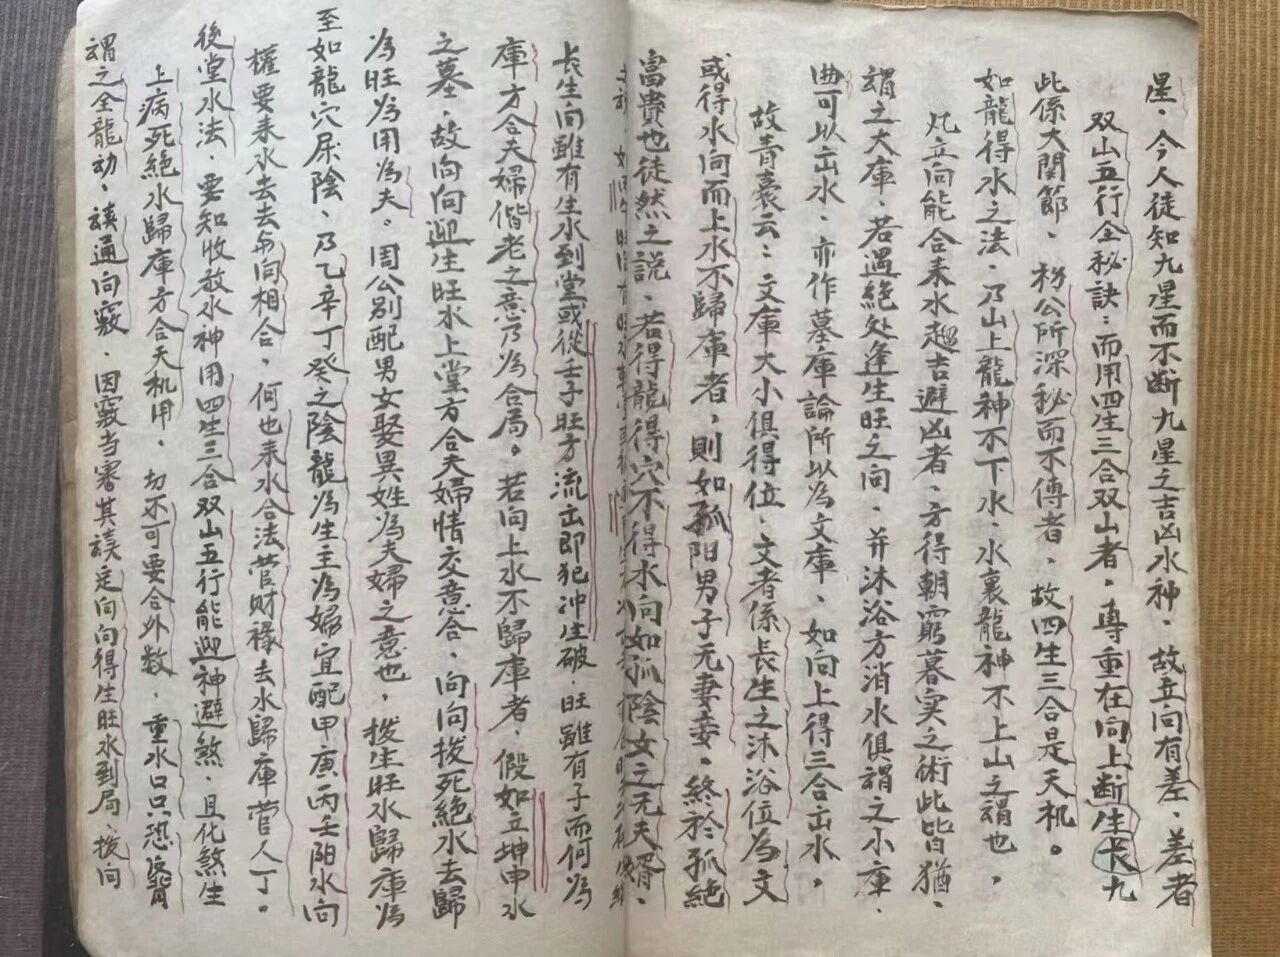 星、今人徒知九星而不断九星之吉凶水神、故立向有差、差者
双山五行全秘訣:而用四生三合双山者、專重在向上断生長九
此係大関節、楊公所深秘而不傳者、故四生三合是天机。
如龍得水之法、乃山上龍神不下水、水裏龍神不上山之謂也、
凡立向能合来水趨吉避凶者、方得朝窮暮实之術此皆猶、
謂之大庫、若遇絕处逢生旺之向、并沐浴方消水俱謂之小庫、
可以出水、亦作墓庫論所以為文庫、如向上得三合出水、
故青囊云:文庫大小俱得位、文者係長生之沐浴位為文
或得水向而上水不歸庫者、則如孤阳男子无妻妾、終於孤絕
富貴也徒然之說、若得龍得穴不得水向如孤陰女之无夫壻、
長生向雖有生水到堂或從壬子旺方流出即犯冲生破、旺雖有子而何為
庫方合夫婦偕老之意乃為合局。若向上水不歸庫者、假如立坤申水
之墓、故向向迎生旺水上堂方合夫婦情交意合、向向拨死絕水去歸
為旺為用為夫。周公别配男女娶異姓為夫婦之意也、拨生旺水歸庫為
至如龍穴屎陰、乃乙辛丁癸之陰龍為生主為婦宜配甲庚丙壬阳水向
權要来水去去向相合、何也来水合法菅財禄去水歸庫菅人丁。
後堂水法、要知收放水神用四生三合双山五行能迎神避煞、且化煞生
上病死絕水歸庫方合天机用、切不可要合外数、重水口只恐
謂之全龍动、該通向竅、因竅当審其該定向向得生旺水到局、拨向